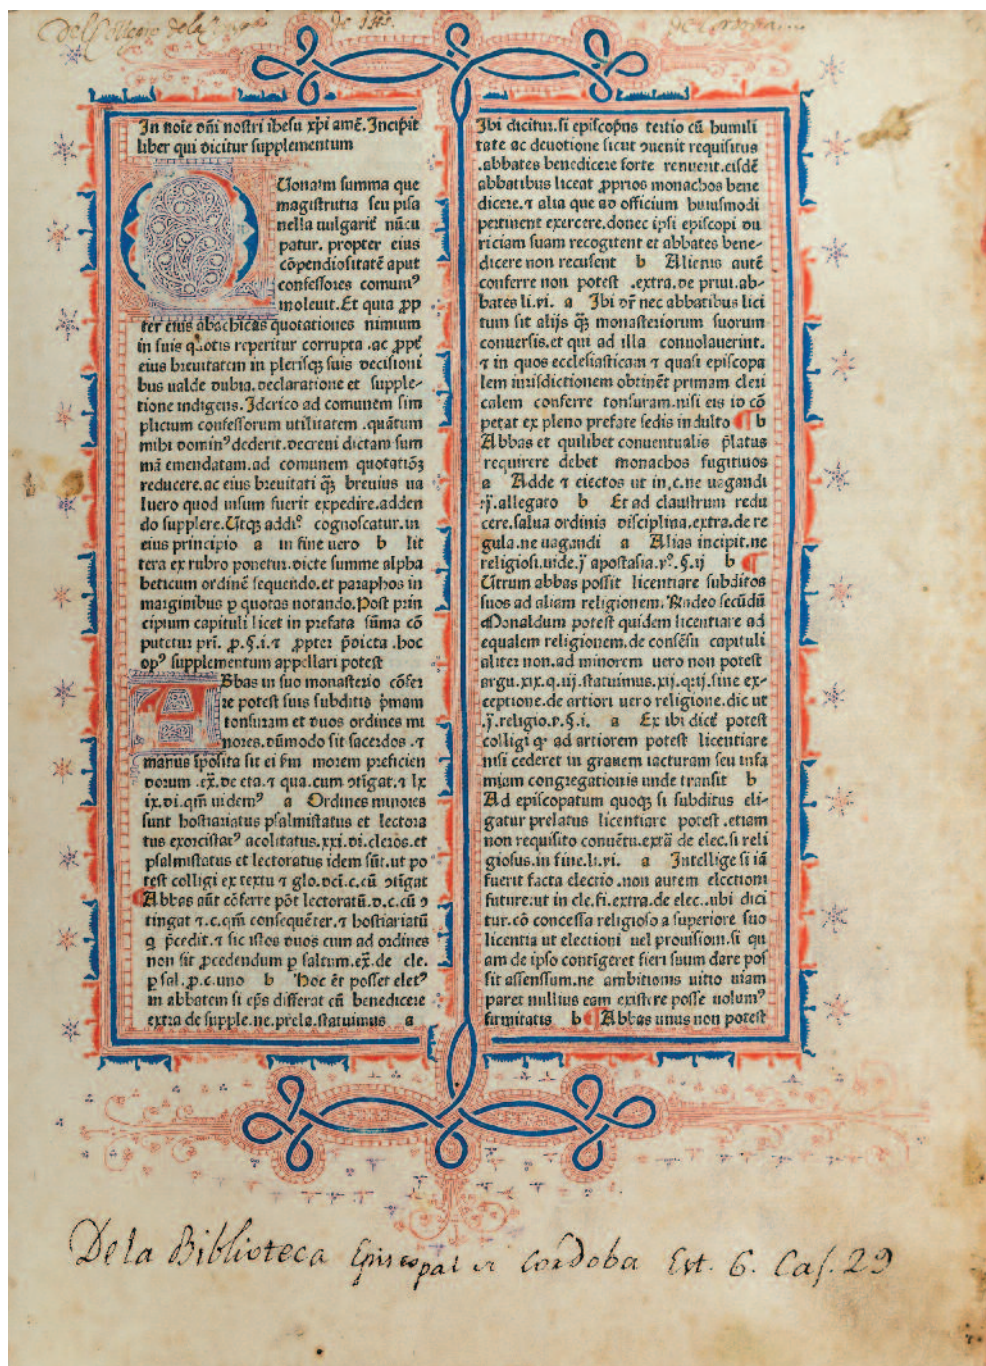 Del Collegio de la
de Jhs.
de Cordoua....
In noīe dn̄i nostri ihesu xp̄i amē. Incipit
liber qui dicitur supplementum
QUoniam summa que
magistrutia seu pisa
nella uulgarit̄ nūcu
patur. propter eius
cōpendiositatē aput
confessores comunꝰ
inoleuit. Et quia ꝓp
ter eius abachicas quotationes nimium
in suis quotis reperitur corrupta .ac ꝓpt̄
eius breuitatem in plerisqꝫ suis decisioni
bus ualde dubia. declaratione et supple-
tione indigens. Idcrico ad comunem sim
plicium confessorum utilitatem .quātum
mihi dominꝰ dederit. decreui dictam sum
mā emendatam. ad comunem quotatiōꝫ
reducere. ac eius breuitati qꝫ breuius ua
luero quod uisum fuerit expedire. adden
do supplere. Utqꝫ addiᵒ cognoscatur. in
eius principio a in fine uero b lit
tera ex rubro ponetur. dicte summe alpha
beticum ordinē sequendo. et paraphos in
marginibus p quotas notando. Post prin
cipium capituli licet in prefata sūma cō
putetur pri. p.§.i. ⁊ ꝓpter p̄dicta .hoc
opꝰ supplementum appellari potest
ABbas in suo monasterio cōfer
re potest suis subditis p̄mam
tonsuram et duos ordines mi
nores. dūmodo sit sacerdos .⁊
manus īposita sit ei f̄m morem preficien
dorum .ex̄. de eta. ⁊ qua. cum ↄtīgat. ⁊ lx
ix. di. qm̄ uidemꝰ a Ordines minores
sunt hostiariatus psalmistatus et lectora
tus exorcistatꝰ acolitatus. xxi. di. cleros. et
psalmistatus et lectoratus idem sūt. ut po
test colligi ex textu ⁊ glo. dci. c. cū ↄtīgat
Abbas aūt cōferre pōt lectoratū. d. c. cū ↄ
tingat ⁊. c. qm̄ consequēter. ⁊ hostiariatū
q p̄cedit. ⁊ sic istos duos cum ad ordines
non sit ꝓcedendum p saltum. ex̄. de cle.
p sal. p. c. uno b Hoc ēt posset eletꝰ
in abbatem si ep̄s differat eū benedicere
extra de supple. ne. prela. statuimus a
Ibi dicitur. si episcopus tertio cū humili
tate ac deuotione sicut ↄuenit requisitus
.abbates benedicere forte renuerit. eisdē
abbatibus liceat ꝓprios monachos bene
dicere. ⁊ alia que ad officium huiusmodi
pertinent exercere. donec ipsi episcopi du
riciam suam recogitent et abbates bene-
dicere non recusent b Alienis autē
conferre non potest .extra. de priui. ab-
bates li. vi. a Ibi dr̄ nec abbatibus lici
tum sit alijs qꝫ monasteriorum suorum
conuersis. et qui ad illa conuolauerint.
⁊ in quos ecclesiasticam ⁊ quasi episcopa
lem iurisdictionem obtinēt primam cleri
calem conferre tonsuram. nisi eis id cō
petat ex pleno prefate sedis indulto ¶ b
Abbas et quilibet conuentualis p̄latus
requirere debet monachos fugitiuos
a Adde ⁊ eiectos ut in. c. ne uagandi
.ij. allegato b Et ad claustrum redu
cere. salua ordinis disciplina. extra. de re
gula. ne uagandi a Alias incipit. ne
religiosi. uide. j̄ apostasia. rᵒ. §. ij b ¶
Utrum abbas possit licentiare subditos
suos ad aliam religionem. Rn̄deo secūdū
Monaldum potest quidem licentiare ad
equalem religionem. de consēsu capituli
aliter non. ad minorem uero non potest
argu. xix. q. iij. statuimus. xij. q. ij. sine ex-
ceptione. de artiori uero religione. dic ut
.j̄. religio. p. §. i. a Ex ibi dict̄ potest
colligi qꝫ ad artiorem potest licentiare
nisi cederet in grauem iacturam seu infa
miam congregationis unde transit b
Ad episcopatum quoqꝫ si subditus eli-
gatur prelatus licentiare potest .etiam
non requisito conuētu. extrā de elec. si reli
giosus. in fine. li. vi. a Intellige si iā
fuerit facta electio .non autem electioni
future: ut in cle. fi. extra. de elec. ubi dici
tur. cō concessa religioso a superiore suo
licentia ut electioni uel prouisioni. si qu
am de ipso contigeret fieri suum dare pos
sit assensum. ne ambitionis uitio uiam
paret nullius eam existere posse uolumꝰ
firmitatis b ¶ Abbas unus non potest
De la Biblioteca Episcopal de Cordoba Est. 6. Caj. 29